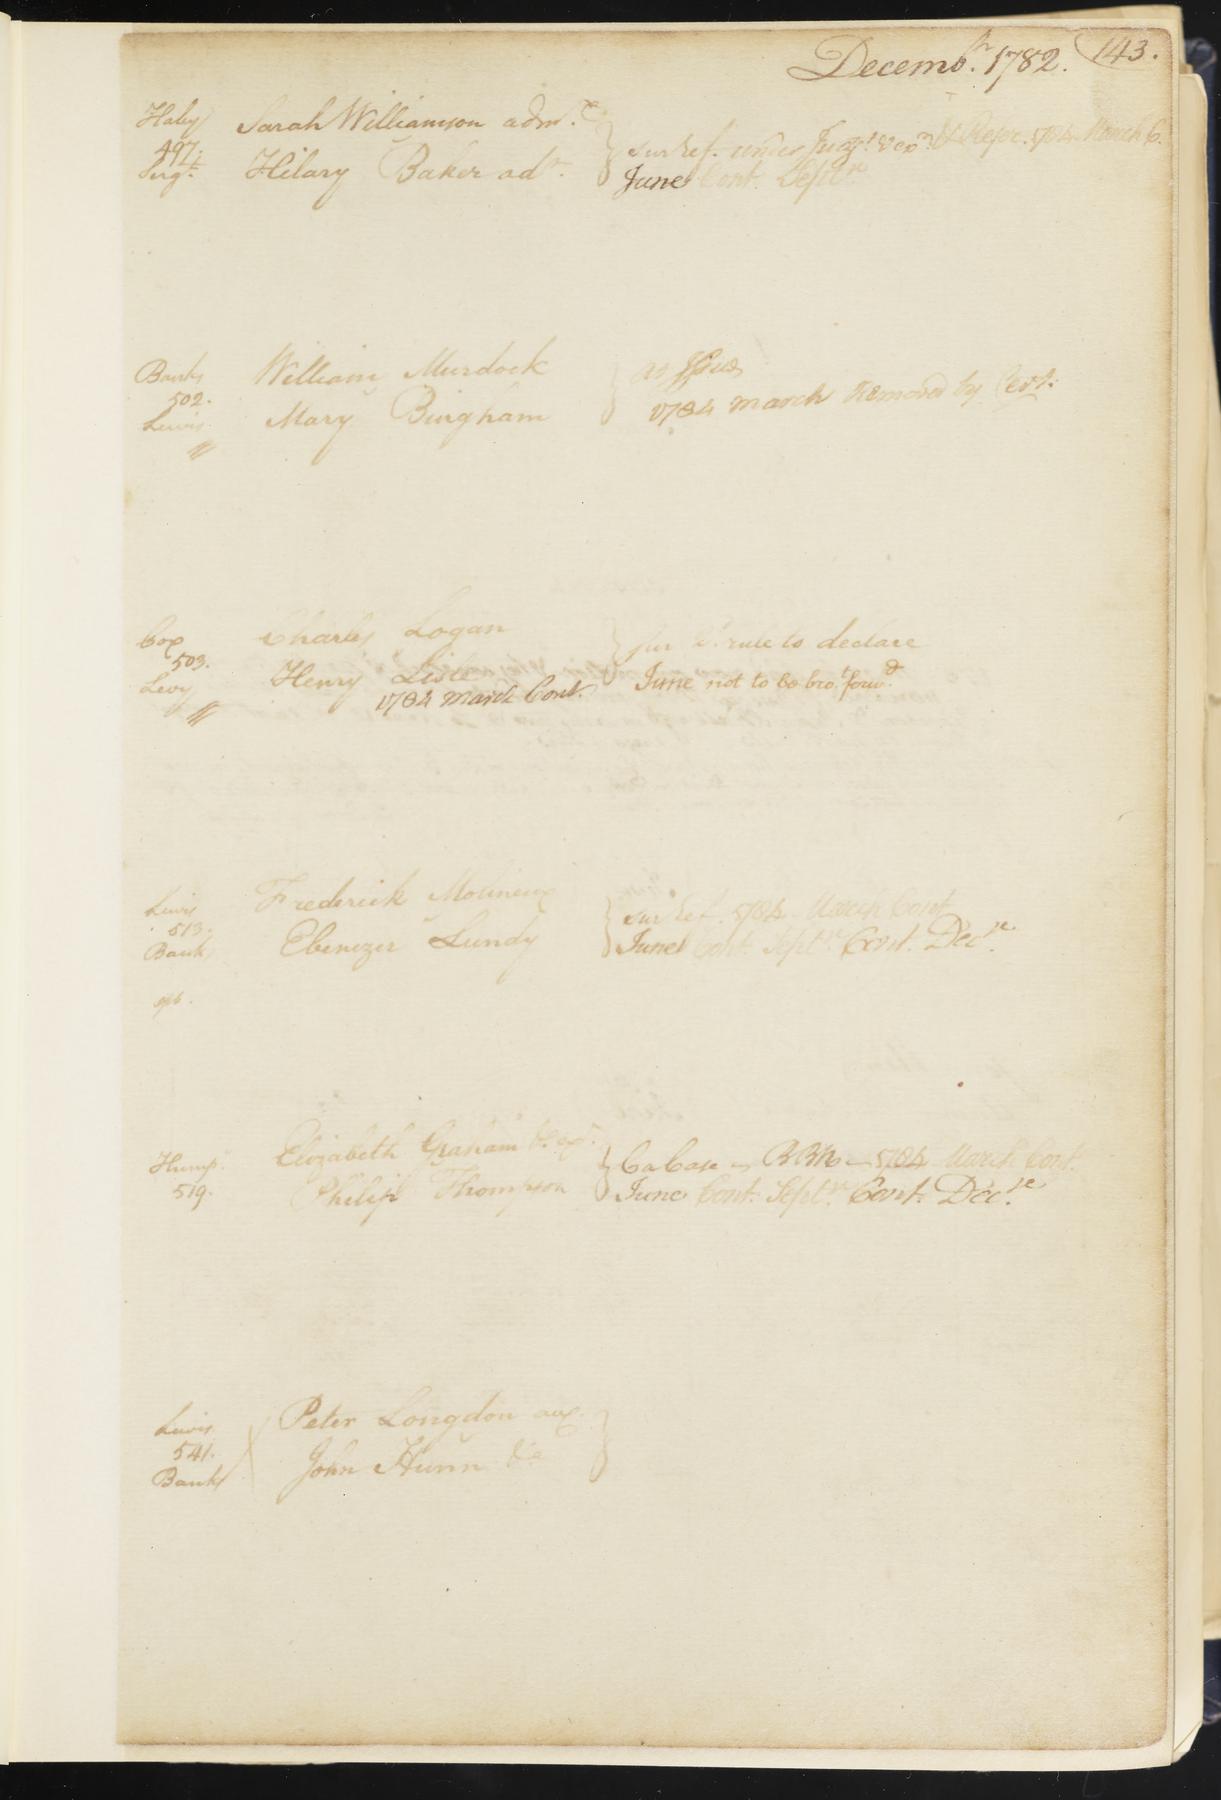 Decemb.r 1782. 143.
Sarah Williamson adm.x
497.
Serg.t Hilary Baker ad.r
sur ref. under Judg.t 1784 March C.
June Cont. Septr
Banks William Murdock
502.
Lewis Mary Bingham
as Issue
1784 March Removed by Cert.
Cox Charles Logan
503.
Levy Henry Lisle
1784 March Cont.
sur rule to declare
June not to be bro.t forw.d
Lewis Frederick Molineux
513.
Bank Ebenezer Lundy
sur ref. 1784 March Cont
June Cont. Septr Cont. Decre
Hump. Elizabeth Graham
519. Philip Thompson
Ca Case 1784 March Cont.
June Cont. Septr Cont. Decre
Lewis Peter Longdon
541.
Banks John Hunn